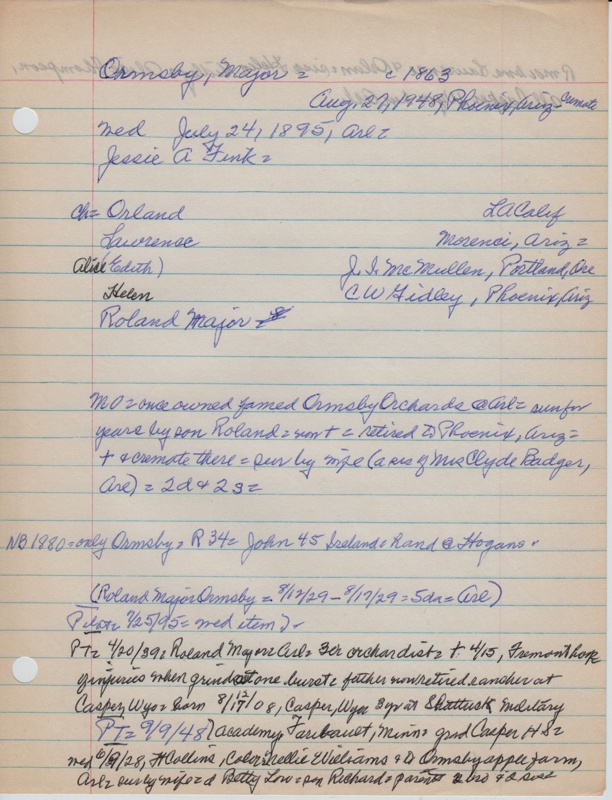 Ormsby, Major = c 1863
Aug. 27, 1948, Phoenix, Ariz = Cremate
med July 24, 1895, Arl =
Jessie A Fink =
ch = Orland LA Calif
Lawrence Morenci, Ariz =
Alice (Edith) J. I. McMullen, Portland, Ore
Helen C W Gidley, Phoenix, Ariz
Roland Major =
MO = once owned famed Ormsby Orchards @ Arl = run for
years by son Roland = won't = retired to Phoenix, Ariz =
+ & cremate there = sur by wife (a sis of Mrs Clyde Badger,
Arl) = 2d & 2s =
NB 1880 = only Ormsby = R 34 = John 45 Ireland = hand @ Hogans.
(Roland Major Ormsby = 8/12/29 - 8/17/29 = 5da = Arl)
Pilot = 7/25/95 = med item) =
PT = 4/20/39 = Roland Major = Arl = 3er orchardist = + 4/15, Fremont hosp
of injuries when grindstone burst = father now retired rancher at
Casper, Wyo = born 8/12/08, Casper, Wyo = 3 yr at Shattuck military
PT = 9/9/48) academy Faribault, Minn = grad Casper H S =
med 6/9/28, Ft Collins, Colo = Nellie E Williams = to Ormsby apple farm,
Arl = sur by wife = d Betty Lou = son Richard = parents 2 bro & 2 siss